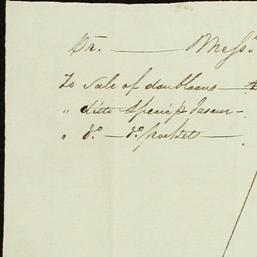 Dr. Mess.
To Sale of doubloons
" ditto Specie p
" do. do.